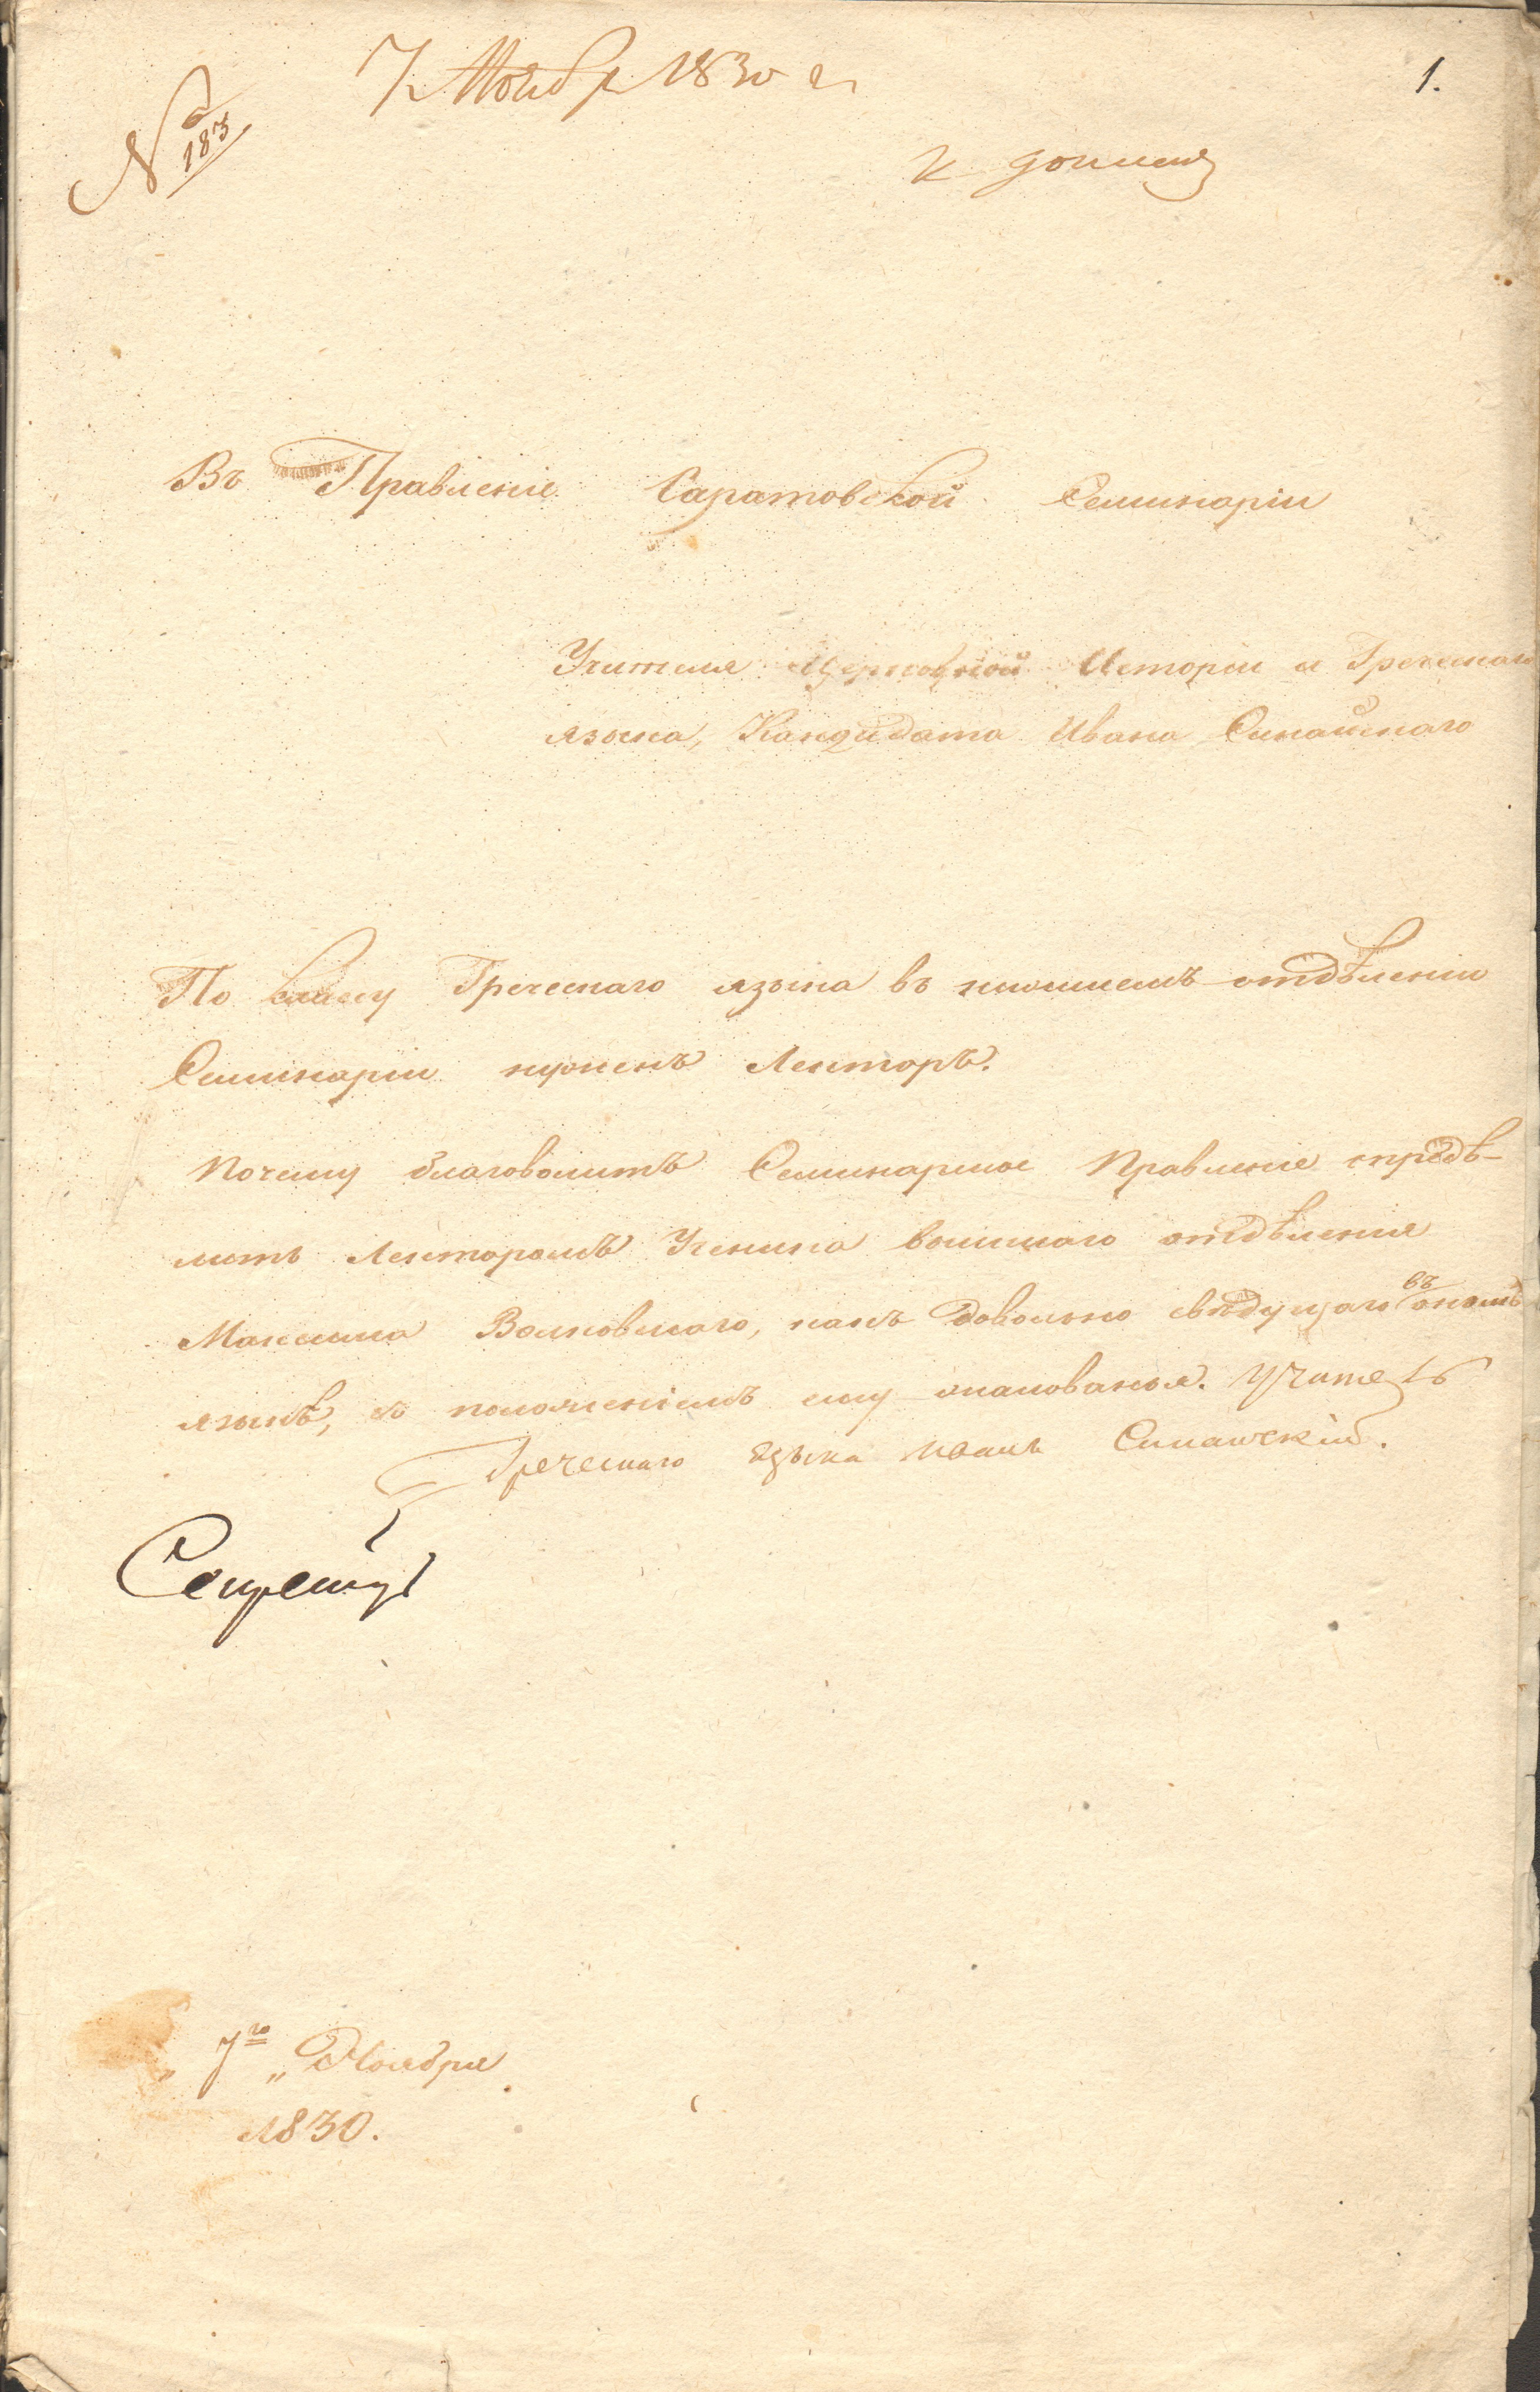 7 Ноябр 1830 г
1.
№ 183
к
Въ Правленіе Саратовской Семинаріи
Учителя Церковной Исторіи и Греческаго
языка, Кандидата Ивана Синайскаго
По классу Греческаго языка въ нисшемъ отдѣленіи
Семинаріи нуженъ Лекторъ.
Почему благоволитъ Семинарное Правленіе опредѣ-
лить Лекторомъ Ученика высшаго отдѣленія
Максима Волковскаго, какъ довольно свѣдущаго въ ономъ
языкѣ, съ положеніемъ ему жалованья. Учитель
Греческаго языка Иванъ Синайскій.
Секретарь
7го „ Ноября
1830.